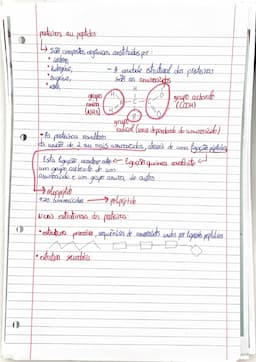 proteínas ou peptídeos
↳ são compostos orgânicos constituídos por:
• carbono,
• hidrogénio,
• oxigénio,
• azoto,
- A unidade estrutural das proteínas são os aminoácidos
grupo amina (NH2)
H
N
H
H
C
R
C
O
OH
grupo carboxilo (COOH)
grupo radical (varia dependendo do aminoácido)
• As proteínas resultam
da união de 2 ou mais aminoácidos, através de uma ligação peptídica
Esta ligação ← ligação química
um grupo carboxilo de um
aminoácido e um grupo amina de outro
→ oligopéptido
+20 aminoácidos → polipéptido
Níveis estruturais das proteínas
• estrutura primária, sequências de aminoácidos unidos por ligações peptídicas
• estrutura secundária